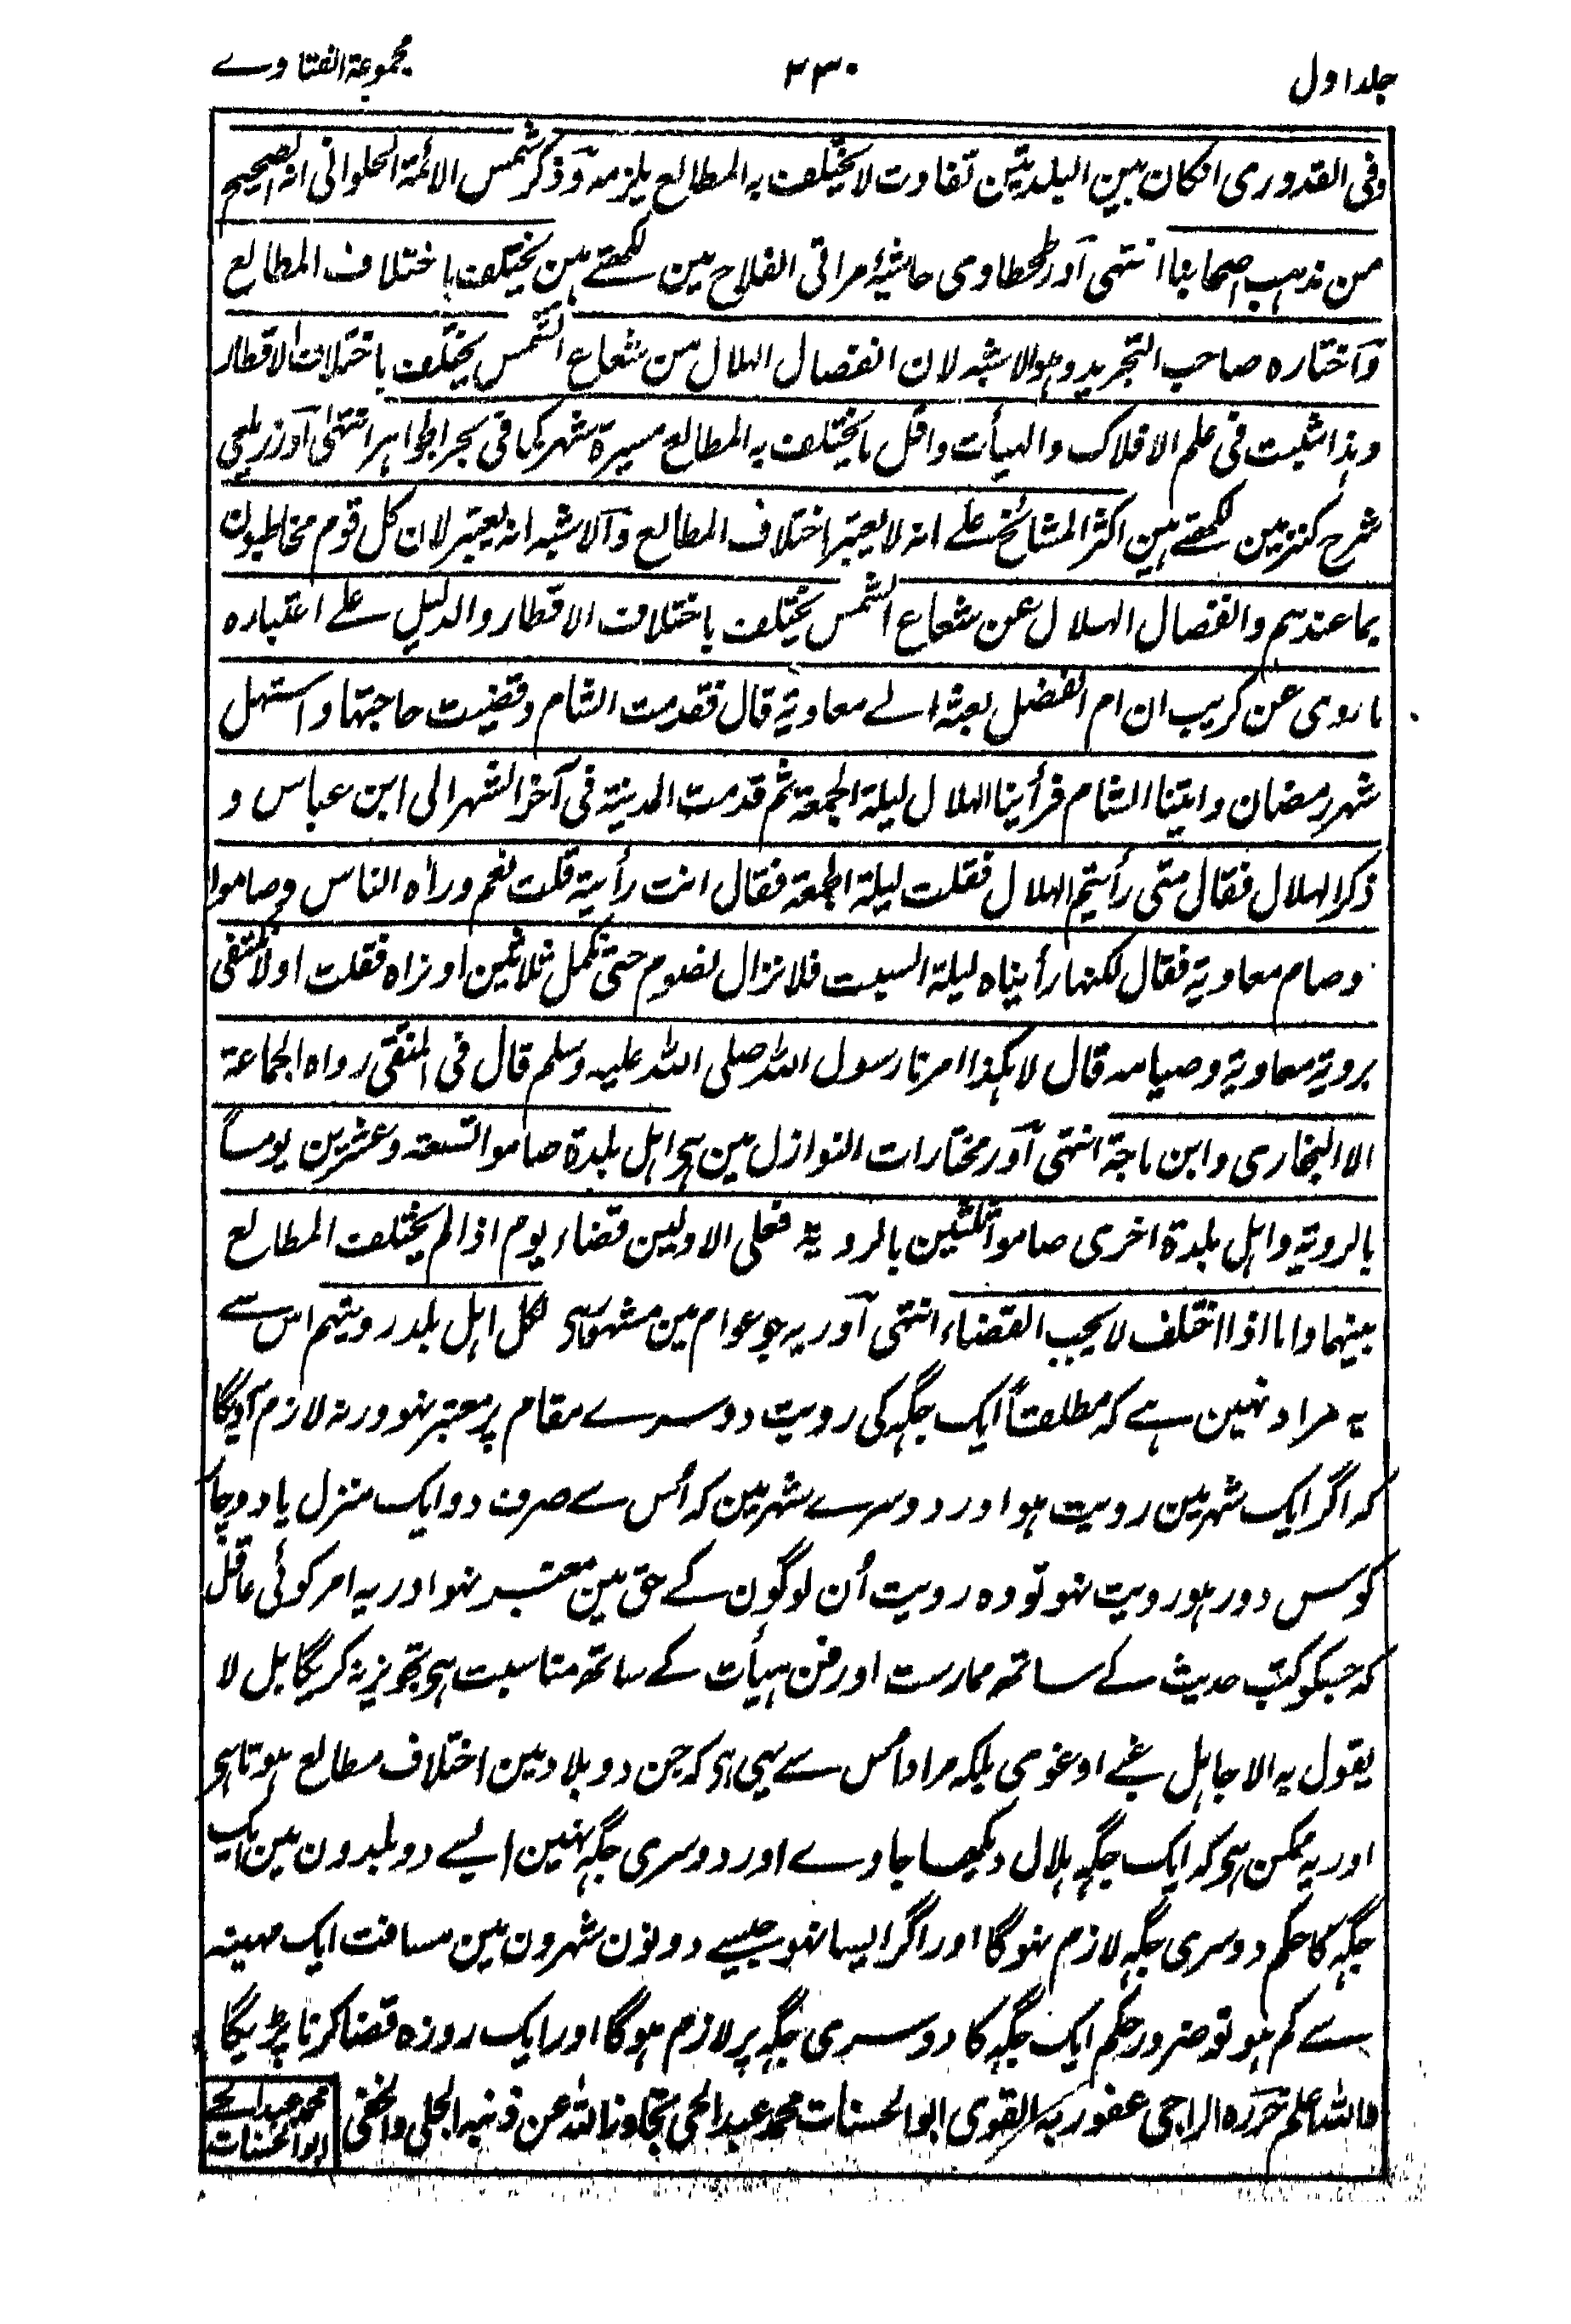 جلد اول
۳۳۰
مجموعۃ الفتاوے
وفی القدوری ان کان بین البلدتین تفاوت لا یختلف بہ المطالع یلزمہ وذکر شمس الائمۃ الحلوانی انہ الصحیح
من مذہب اصحابنا انتہی اور طحطاوی حاشیۂ مراقی الفلاح مین لکھتے ہین یختلف باختلاف المطالع
واختارہ صاحب التجرید وہو الاشبہ لان انفصال الہلال من شعاع الشمس یختلف باختلاف الاقطار
وہذا مثبت فی علم الافلاک والہیأت واقل ما یختلف بہ المطالع مسیرۃ شہر کما فی بحر الجواہر انتہٰی اور زیلعی
شرح کنز مین لکھتے ہین اکثر المشائخ علے انہ لا یعتبر اختلاف المطالع والاشبہ انہ یعتبر لان کل قوم مخاطبون
بما عندہم وانفصال الہلال عن شعاع الشمس یختلف باختلاف الاقطار والدلیل علے اعتبارہ
ما روی عن کریب ان ام الفضل بعثہ الے معاویۃ قال فقدمت الشام وقضیت حاجتہا واستہل
شہر رمضان واتینا الشام فرأینا الہلال لیلۃ الجمعۃ ثم قدمت المدینۃ فی آخر الشہر الی ابن عباس و
ذکر الہلال فقال متی رأیتم الہلال فقلت لیلۃ الجمعۃ فقال انت رأیتہ قلت نعم ورآہ الناس وصاموا
وصام معاویۃ فقال لکنہا رأیناہ لیلۃ السبت فلا نزال نصوم حتی نکمل ثلاثین او نراہ فقلت اولا نکتفی
برویۃ معاویۃ وصیامہ قال لا ہکذا امرنا رسول اللہ صلی اللہ علیہ وسلم قال فی المنتقی رواہ الجماعۃ
الا البخاری وابن ماجۃ انتہی اور مختارات النوازل مین ہی اہل بلدۃ صاموا تسعۃ وعشرین یوماً
بالرویۃ واہل بلدۃ اخری صاموا ثلثین بالرویۃ فعلی الاولین قضاء یوم اذا لم یختلف المطالع
بینہما واما اذا اختلف لا یجب القضاء انتہی اور یہ جو عوام مین مشہور ہی لکل اہل بلد رویتہم اس سے
یہ مراد نہین ہے کہ مطلقاً ایک جگہ کی رویت دوسرے مقام پر معتبر نہو ورنہ لازم آویگا
کہ اگر ایک شہر مین رویت ہو اور دوسرے شہر مین کہ اُس سے صرف دو ایک منزل یا دو چار
کوس دور ہو رویت نہو تو وہ رویت اُن لوگون کے حق مین معتبر نہو اور یہ امر کوئی عاقل
کہ جسکو کتب حدیث کے ساتھ ممارست اور فن ہیأت کے ساتھ مناسبت ہی تجویز نہ کریگا بل لا
یقول بہ الا جاہل غبے او غوی بلکہ مراد اُس سے یہی ہی کہ جن دو بلاد مین اختلاف مطالع ہوتا ہی
اور یہ ممکن ہی کہ ایک جگہ ہلال دیکھا جاوے اور دوسری جگہ نہین ایسے دو بلدون مین ایک
جگہ کا حکم دوسری جگہ لازم نہوگا اور اگر ایسا نہو جیسے دونون شہرون مین مسافت ایک مہینہ
سے کم ہو تو ضرور حکم ایک جگہ کا دوسری جگہ پر لازم ہوگا اور ایک روزہ قضا کرنا پڑیگا
واللہ اعلم حررہ الراجی عفو ربہ القوی ابو الحسنات محمد عبد الحی تجاوز اللہ عن ذنبہ الجلی والخفی
محمد عبد الحے
ابو الحسنات